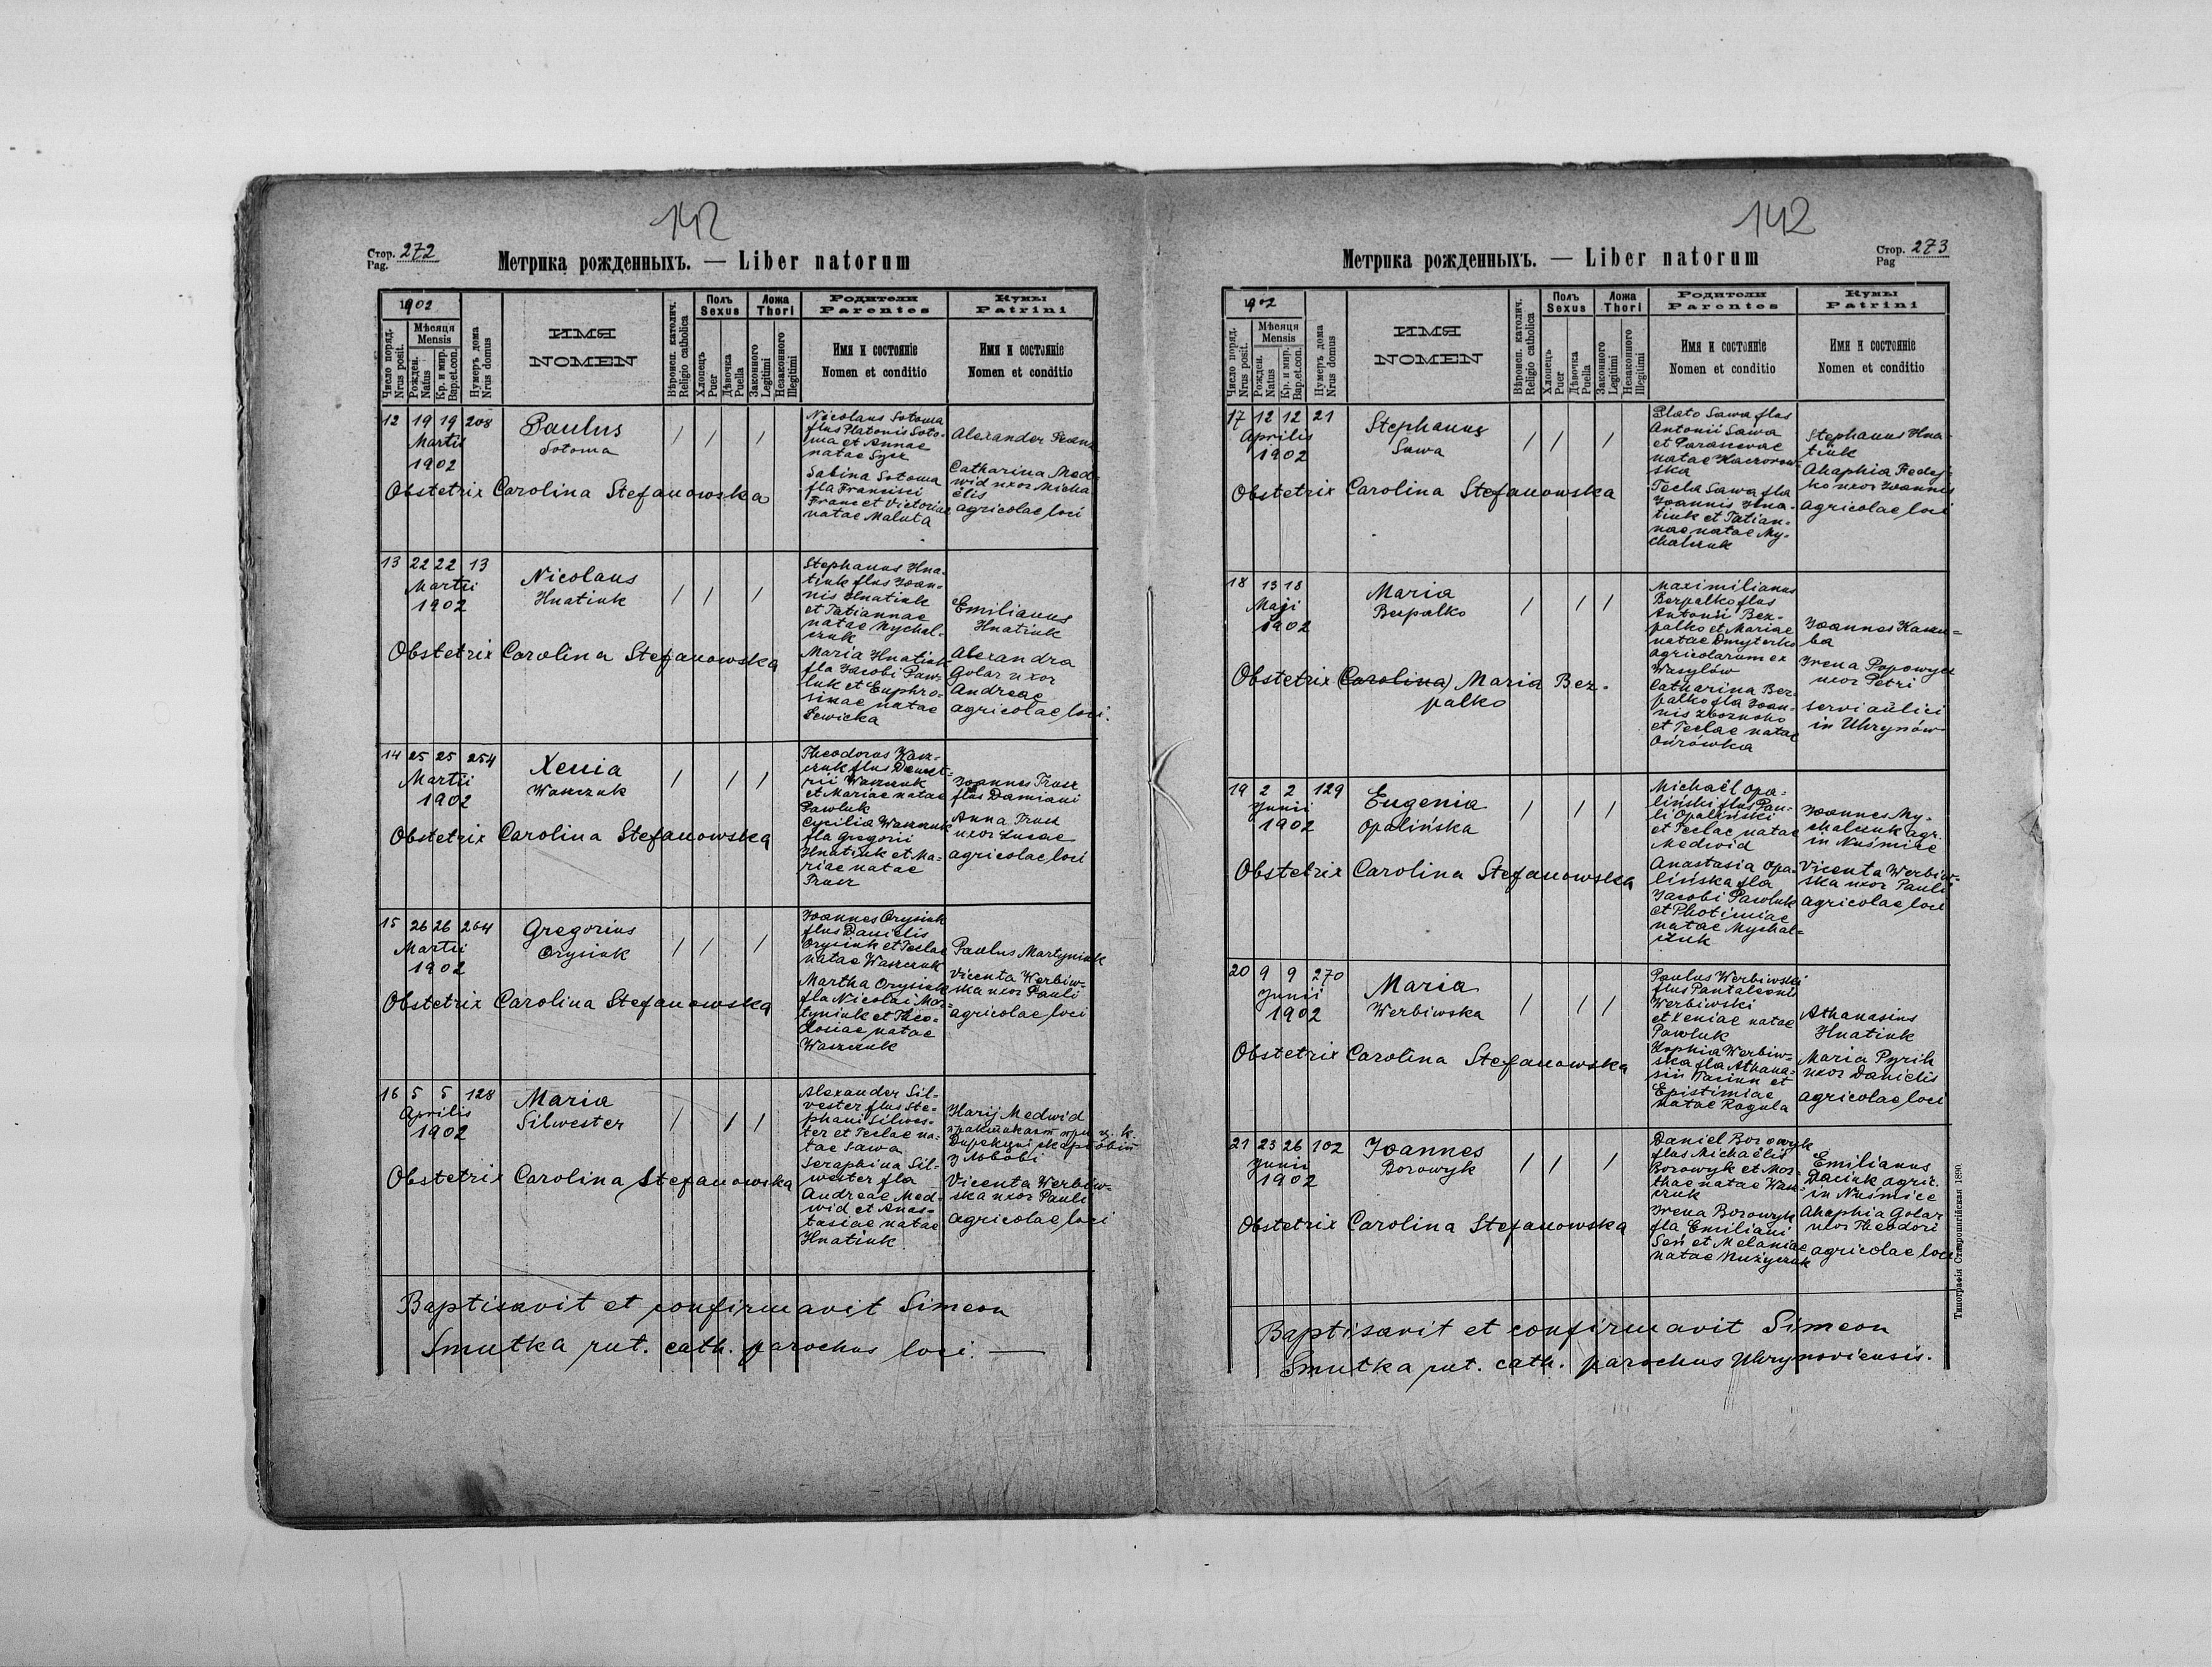 142
Стор. 272
Pag.
Метрика рожденныхъ. — Liber natorum
1902
Число поряд.
Nrus posit.
Мѣсяця
Mensis
Рожден.
Natus
Кр. и мир.
Bap.et.con.
Нумеръ дома
Nrus domus
ИМЯ
NOMEN
Вѣроисп. католич.
Religio catholica
Полъ
Sexus
Хлопець
Puer
Дѣвочка
Puella
Ложа
Thori
Законного
Legitimi
Незаконного
Illegitimi
Родители
Parentes
Имя и состоянie
Nomen et conditio
Кумы
Patrini
Имя и состоянie
Nomen et conditio
12 19 19 208
Martii
1902
Paulus
Sotoma
/ / /
Nicolaus Sotoma
flus Platonis Soto-
ma et Annae
natae Sycz
Sabina Sotoma
fla Francisci
Franc et Victoriae
natae Maluta
Alexander
Catharina Med-
wid uxor Micha
ëlis
agricolae loci
Obstetrix Carolina Stefanowska
13 22 22 13
Martii
1902
Nicolaus
Hnatiuk
/ / /
Stephanus Hna-
tiuk flus Joan-
nis Hnatiuk
et Tatiannae
natae Mychal-
czuk
Maria Hnatiuk
fla Jacobi Paw-
luk et Euphro-
sinae natae
Lewicka
Emilianus
Hnatiuk
Alexandra
Golar uxor
Andreae
agricolae loci.
Obstetrix Carolina Stefanowska
14 25 25 254
Martii
1902
Xenia
Waszczuk
/ / /
Theodorus Wasz-
czuk flus Demet-
rii Waszczuk
et Mariae natae
Pawluk
Cycilia Waszczuk
fla Gregorii
Hnatiuk et Ma-
riae natae
Trusz
Joannes Trusz
flus Damiani
Anna Trusz
uxor Lucae
agricolae loci
Obstetrix Carolina Stefanowska
15 26 26 264
Martii
1902
Gregorius
Orysiuk
/ / /
Joannes Orysiuk
flus Danielis
Orysiuk et Teclae
natae Waszczuk
Martha Orysiuk
fla Nicolai Mar-
tyniuk et Theo-
dosiae natae
Waszczuk
Paulus Martyniuk
Vicenta Werbiw-
ska uxor Pauli
agricolae loci
Obstetrix Carolina Stefanowska
16 5 5 128
Aprilis
1902
Maria
Silwester
/ / /
Alexander Sil-
vester flus Ste-
phani Silwes-
ter et Teclae na-
tae Sawa
Seraphina Sil-
wester fla
Andreae Med-
wid et Anas-
tasiae natae
Hnatiuk
Harij Medwid
практикант при ц. к.
Дирекциї скарбовій
у Львові
Vicenta Werbiw-
ska uxor Pauli
agricolae loci
Obstetrix Carolina Stefanowska
Baptisavit et confirmavit Simeon
Smutka rut. cath. parochus loci. —
142
Стор. 273
Pag
Метрика рожденныхъ. — Liber natorum
1902
Число поряд.
Nrus posit.
Мѣсяця
Mensis
Рожден.
Natus
Кр. и мир.
Bap.et.con.
Нумеръ дома
Nrus domus
ИМЯ
NOMEN
Вѣроисп. католич.
Religio catholica
Полъ
Sexus
Хлопець
Puer
Дѣвочка
Puella
Ложа
Thori
Законного
Legitimi
Незаконного
Illegitimi
Родители
Parentes
Имя и состоянie
Nomen et conditio
Кумы
Patrini
Имя и состоянie
Nomen et conditio
17 12 12 21
Aprilis
1902
Stephanus
Sawa
/ / /
Plato Sawa flus
Antonii Sawa
et Parascevae
natae Kaczorow-
ska
Tecla Sawa fla
Joannis Hna-
tiuk et Tatian-
nae natae My-
chalczuk
Stephanus Hna-
tiuk
Ahaphia Fedej-
ko uxor Joannis
agricolae loci
Obstetrix Carolina Stefanowska
18 13 18
Maji
1902
Maria
Bezpalko
/ / /
Maximilianus
Bezpalko flus
Antonii Bez-
palko et Mariae
natae Dmyterko
agricolarum ex
Wasylów
Catharina Bez-
palko fla Joan-
nis
et Teclae natae
Ożżówka
Joannes Kaszu-
ba
Irena Popowycz
uxor Petri
servi aulici
in Uhrynów
Obstetrix (Carolina) Maria Bez-
palko
19 2 2 129
Junii
1902
Eugenia
Opalińska
/ / /
Michaël Opa-
liński flus Pau-
li Opaliński
et Teclae natae
Medwid
Anastasia Opa-
lińska fla
Jacobi Pawluk
et Photimiae
natae Mychal-
czuk
Joannes My-
chalczuk agr.
in Nuśmice
Vicenta Werbiw-
ska uxor Pauli
agricolae loci
Obstetrix Carolina Stefanowska
20 9 9 270
Junii
1902
Maria
Werbiwska
/ / /
Paulus Werbiwski
flus Pantaleonis
Werbiwski
et Xeniae natae
Pawluk
Sophia Werbiw-
ska fla Athana-
sii et
Epistimiae
natae Rogula
Athanasius
Hnatiuk
Maria Pyrih
uxor Danielis
agricolae loci
Obstetrix Carolina Stefanowska
21 23 26 102
Junii
1902
Joannes
Borowyk
/ / /
Daniel Borowyk
flus Michaëlis
Borowyk et Mar-
thae natae Wasz-
czuk
Irena Borowyk
fla Emiliani
Seń et Melaniae
natae Mużyczuk
Emilianus
Daciuk agric.
in Nuśmice
Ahaphia Golar
uxor Theodori
agricolae loci
Obstetrix Carolina Stefanowska
Baptisavit et confirmavit Simeon
Smutka rut. cath. parochus Uhrynoviensis.
Типографія Ставропигійская 1890.